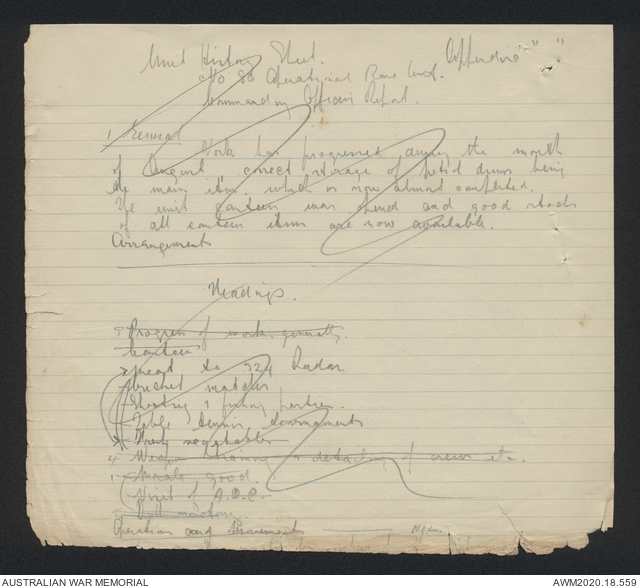 Unit History Sheet. Appendix " "
No 80 Operational Base Unit.
Commanding Officers Report.
1 General
Work has progressed during the month
of August, correct storage of petrol drums being
the main item, which is now almost completed.
The unit canteen was opened and good stocks
of all canteen items are now available.
Arrangements
Headings.
3 Progress of work generally.
Canteen
Meat to 324 Radar
Cricket matches
Shooting & fishing parties.
Table tennis tournaments
vegetables
4 Weapon training & detailing of crews etc.
1 Morale, good.
Visit of A.O.C.
Operations and Movements
AUSTRALIAN WAR MEMORIAL
AWM2020.18.559